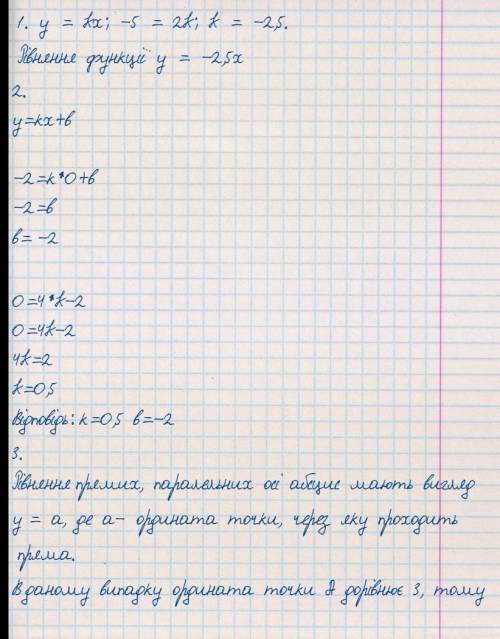 1. y = kx; -5 = 2k; k = -2,5.
Рівняння функції y = -2,5x
2.
y=kx+b
-2=k*0+b
-2=b
b= -2
0=4*k-2
0=4k-2
4k=2
k=0,5
Відповідь: k=0,5 b=-2
3.
Рівняння премих, паралельних осі абсцис мають вигляд
y = a, де a- ордината точки, через яку проходить
према.
В даному випадку ордината точки А дорівнює 3, тому